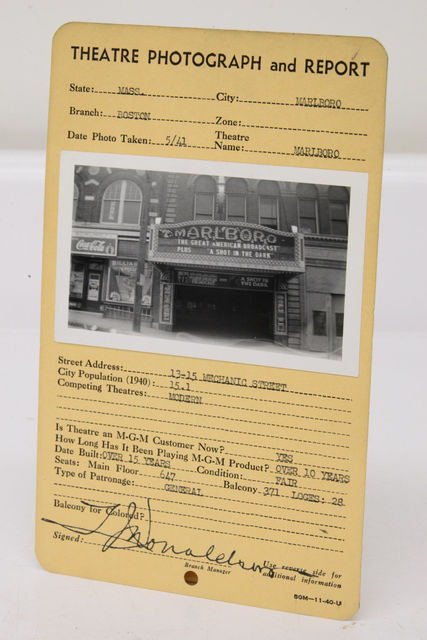 THEATRE PHOTOGRAPH and REPORT
State: MASS. City: MARLBORO
Branch: BOSTON Zone:
Date Photo Taken: 5/41 Theatre Name: MARLBORO
MARLBORO
THE GREAT AMERICAN BROADCAST
PLUS "A SHOT IN THE DARK"
Coca-Cola
BILLIARDS
A SHOT IN
THE DARK
Street Address: 13-15 MECHANIC STREET
City Population (1940): 15.1
Competing Theatres: MODERN
Is Theatre an M-G-M Customer Now? YES
How Long Has It Been Playing M-G-M Product? OVER 10 YEARS
Date Built: OVER 15 YEARS Condition: FAIR
Seats: Main Floor 647 Balcony 371 LOGES: 28
Type of Patronage: GENERAL
Balcony for Colored?
Signed: Donaldson
Branch Manager
Use reverse side for
additional information
50M-11-40-U